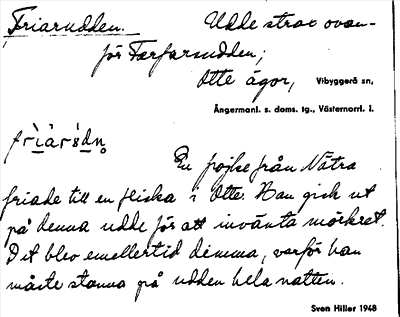 Friarudden. Udde strax ovan-
för Färfarsudden;
Otte ägor, Vibyggerå sn,
Ångermanl. s. doms. tg., Västernorrl. l.
En pojke från Nätra
friade till en flicka i Otte. Han gick ut
på denna udde för att invänta mörkret.
Det blev emellertid dimma, varför han
måste stanna på udden hela natten.
Sven Hiller 1948